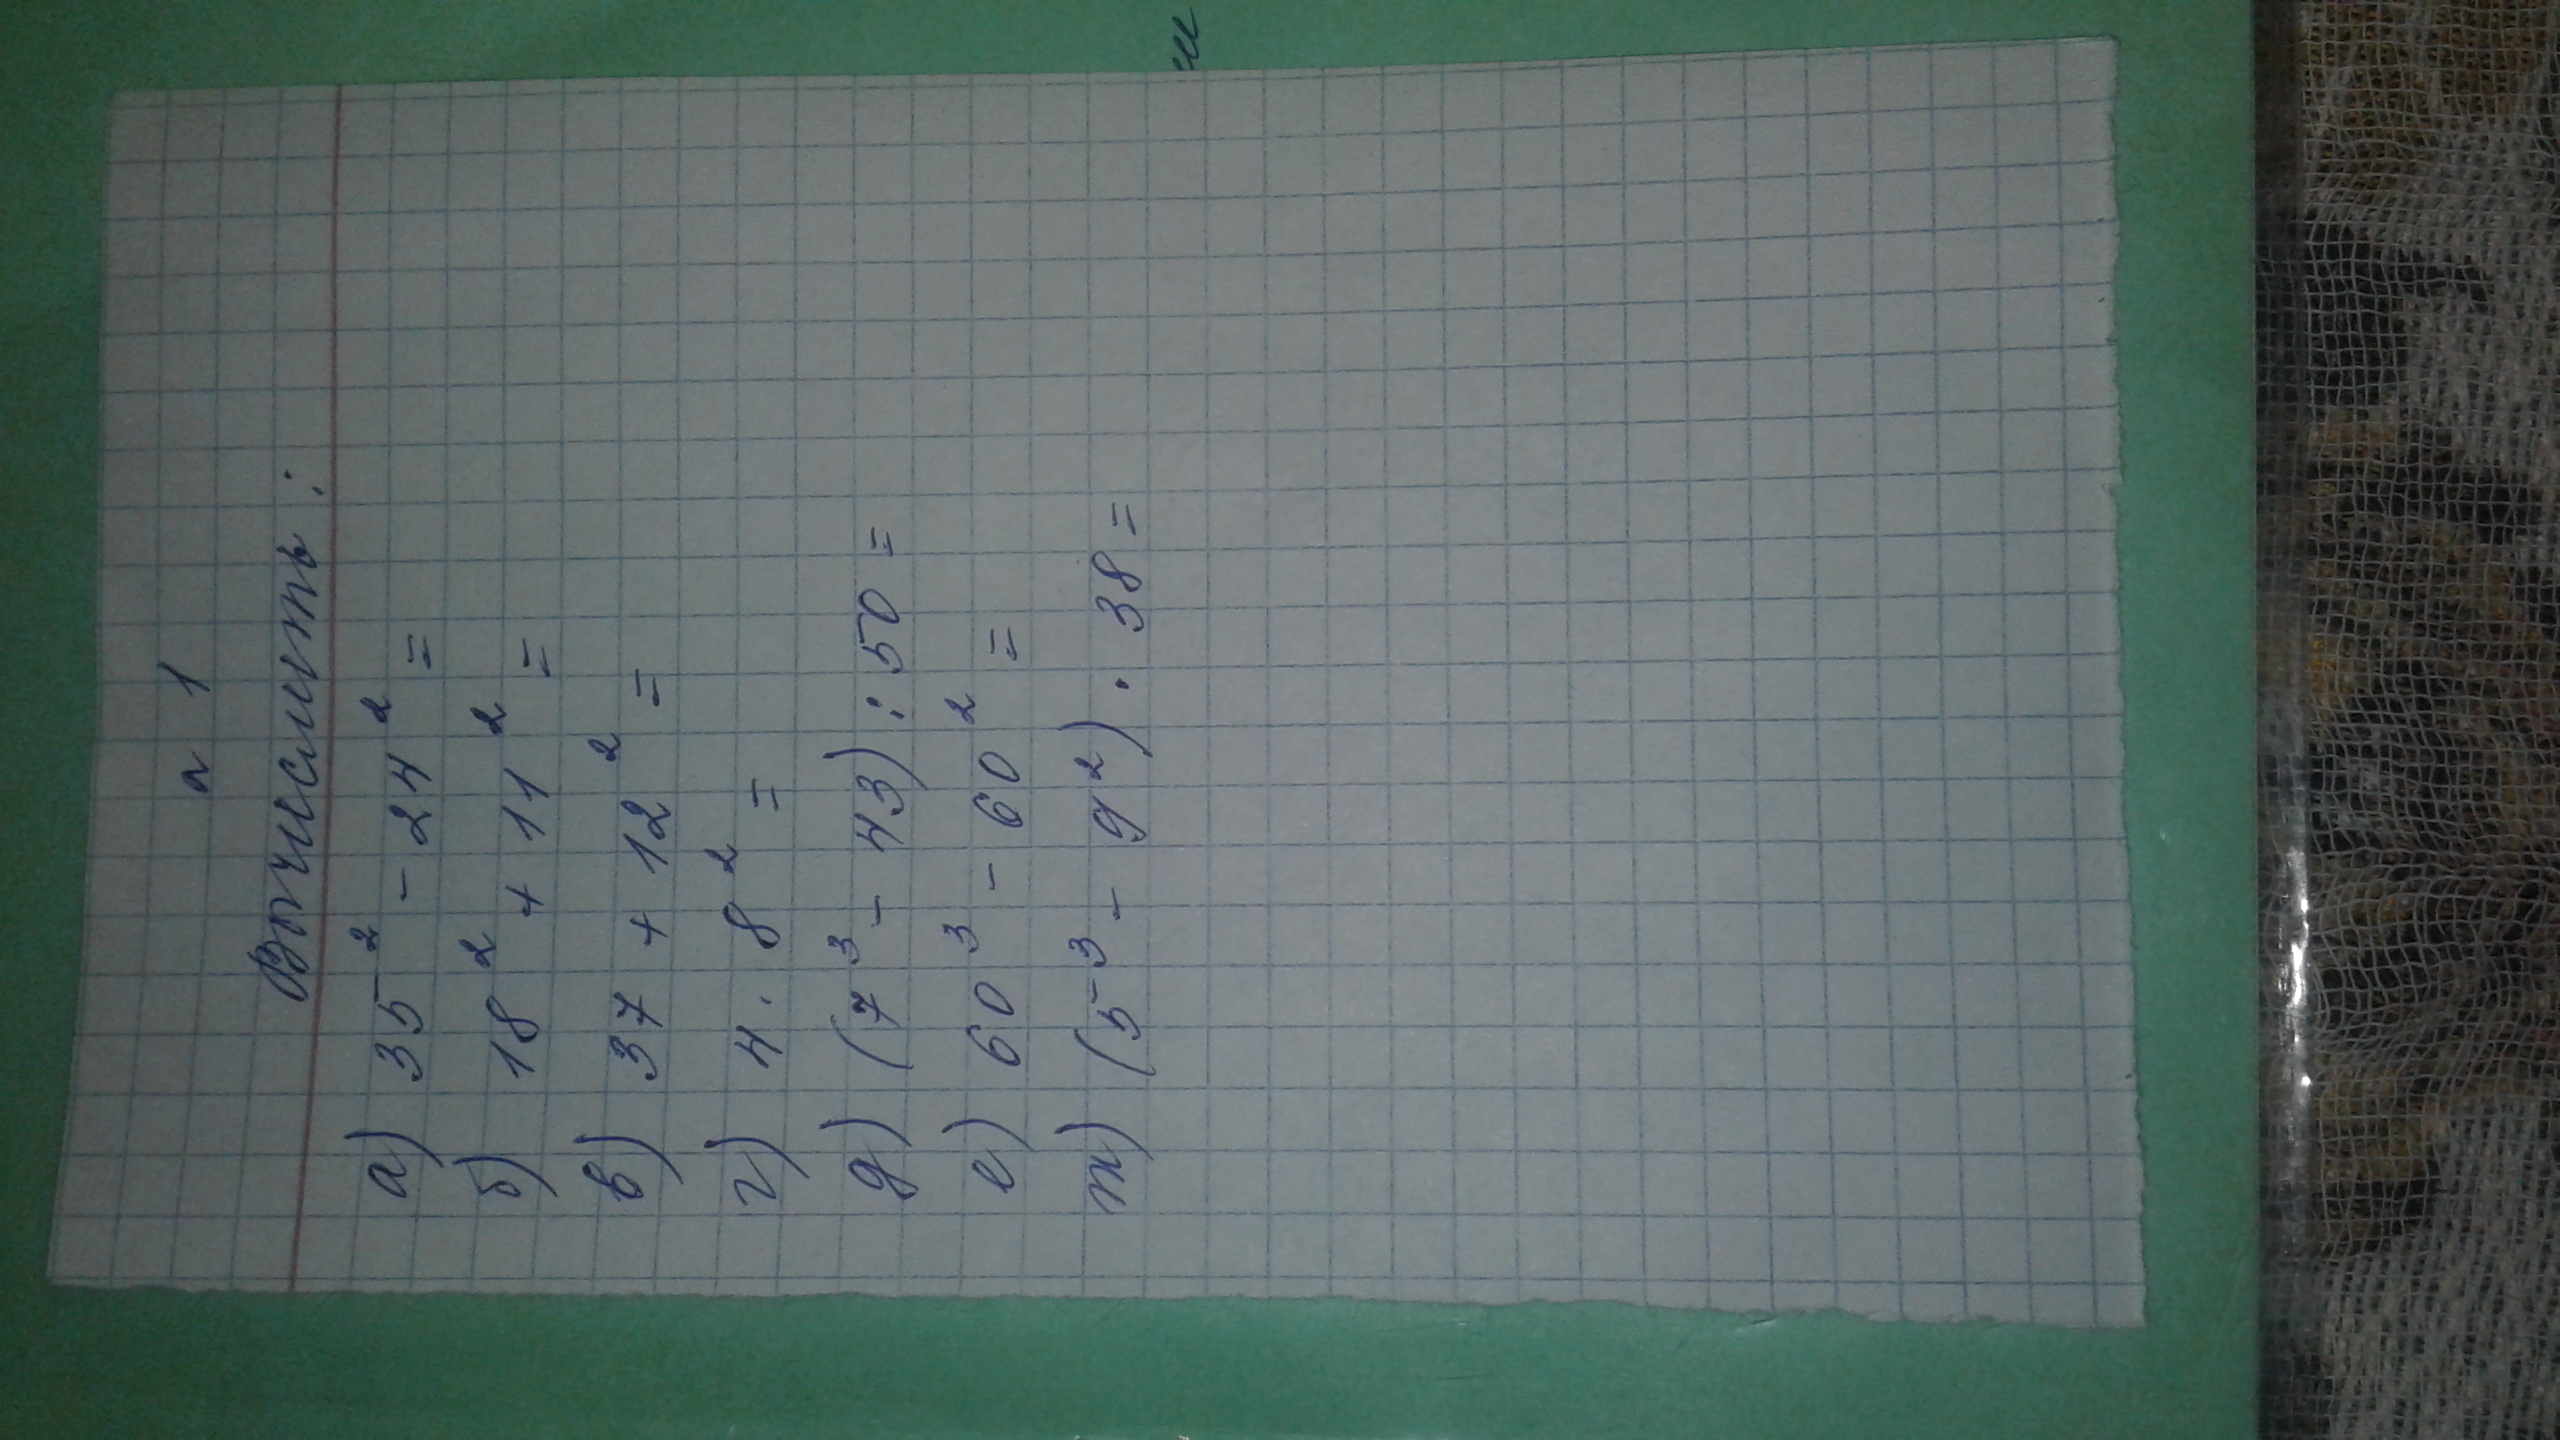 n 1
Вычислить:
а) 35² - 24² =
б) 18² + 11² =
в) 37 + 12² =
г) 4 · 8² =
д) (7³ - 43) : 50 =
е) 60³ - 60² =
т) (5³ - 9²) · 38 =